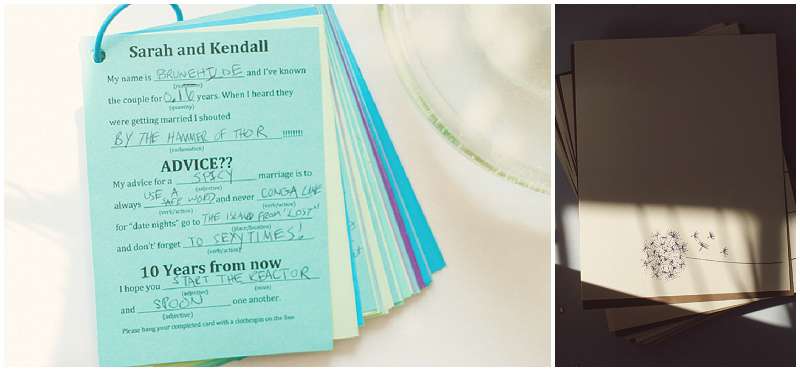 Sarah and Kendall
My name is BRUNEHILDE and I've known
(your name)
the couple for 0.16 years. When I heard they
(quantity)
were getting married I shouted
BY THE HAMMER OF THOR !!!!!!!!
(exclamation)
ADVICE??
My advice for a SPICY marriage is to
(adjective)
always USE A SAFE WORD and never CONGA LINE
(verb/action) (verb/action)
for "date nights" go to THE ISLAND FROM 'LOST'!
(place/location)
and don't' forget TO SEXYTIMES!
(verb/action)
10 Years from now
I hope you START THE REACTOR
(adjective) (noun)
and SPOON one another.
(adjective)
Please hang your completed card with a clothespin on the line